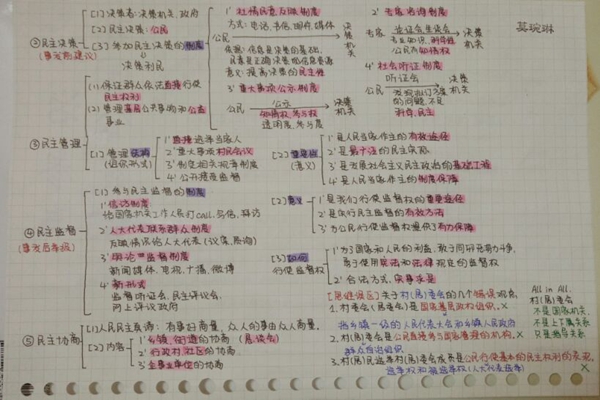 ② 民主决策
(事发前建议)
(1) 决策者: 决策机关, 政府
(2) 民主决策: 公民
(3) 参加民主决策的制度
决策利民
1' 社情民意反映制度
方式: 电话, 书信, 邮件, 媒体
公民 → 决策机关
意义: 提高决策的民主性
3' 重大事项公示制度
公民 公示 决策机关
知情权, 参与权
透明度, 参与度
2' 专家咨询制度
专家 论证会, 座谈会 决策机关
公民有知情权
4' 社会听证制度
听证会
公民 决策机关
科学, 民主
③ 民主管理
(1) 保证群众依法直接行使民主权利
(2) 管理基层公共事务和公益事业
1' 直接选举当家人
2' 重大事项村民会议
3' 制定相关规章制度
4' 公开接受监督
(意义)
1' 是人民当家作主的有效途径
2' 是最广泛的民主实践
3' 是发展社会主义民主政治的基础工程
4' 是人民当家作主的制度保障
④ 民主监督
(事发后举报)
(1) 参与民主监督的制度
1' 信访制度
给国家机关工作人员打call, 写信, 拜访
2' 人大代表联系群众制度
反映情况给人大代表 (议案, 质询)
3' 舆论监督制度
新闻媒体, 电视, 广播, 微博
4' 新形式
监督听证会, 民主评议会,
网上评议政府
(2) 意义
1' 是我们行使监督权的重要途径
2' 是实行民主监督的有效方法
3' 为公民行使监督权提供了有力保障
(3) 如何行使监督权
1' 为了国家和人民的利益, 敢于同邪恶势力斗争,
勇于使用宪法和法律规定的监督权
2' 合法方式, 实事求是
⑤ 民主协商
(1) 人民民主真谛: 有事好商量, 众人的事由众人商量.
(2) 内容
1' 乡镇, 街道的协商 (恳谈会)
2' 行政村, 社区的协商
3' 企事业单位的协商
关于村(居)委会的几个错误观点.
1. 村(居)委会是国家基层政权组织. ×
指乡镇一级的人民代表大会和乡镇人民政府
2. 村(居)委会是公民直接参与国家管理的机构. ×
群众自治组织
3. 村(居)民选举村(居)委会成员是公民行使基本的民主权利的表现. ×
选举权和被选举权 (人大代表选举)
All in All.
村(居)委会
不是国家机关
不是上下属关系
只是指导关系